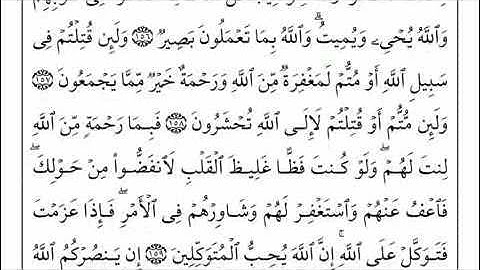 وَٱللَّهُ يُحْىِۦ وَيُمِيتُ ۗ وَٱللَّهُ بِمَا تَعْمَلُونَ بَصِيرٌ ١٥٦ وَلَئِن قُتِلْتُمْ فِى
سَبِيلِ ٱللَّهِ أَوْ مُتُّمْ لَمَغْفِرَةٌ مِّنَ ٱللَّهِ وَرَحْمَةٌ خَيْرٌ مِّمَّا يَجْمَعُونَ ١٥٧
وَلَئِن مُّتُّمْ أَوْ قُتِلْتُمْ لَإِلَى ٱللَّهِ تُحْشَرُونَ ١٥٨ فَبِمَا رَحْمَةٍ مِّنَ ٱللَّهِ
لِنتَ لَهُمْ ۖ وَلَوْ كُنتَ فَظًّا غَلِيظَ ٱلْقَلْبِ لَٱنفَضُّوا۟ مِنْ حَوْلِكَ ۖ
فَٱعْفُ عَنْهُمْ وَٱسْتَغْفِرْ لَهُمْ وَشَاوِرْهُمْ فِى ٱلْأَمْرِ ۖ فَإِذَا عَزَمْتَ
فَتَوَكَّلْ عَلَى ٱللَّهِ ۚ إِنَّ ٱللَّهَ يُحِبُّ ٱلْمُتَوَكِّلِينَ ١٥٩ إِن يَنصُرْكُمُ ٱللَّهُ